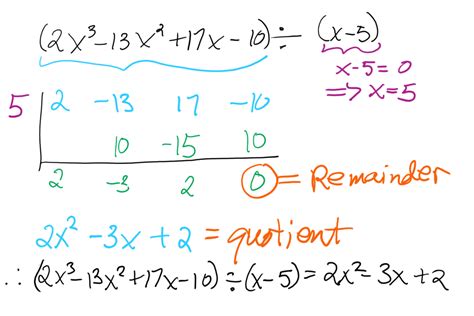 (2x³-13x²+17x-10)÷(x-5)
x-5=0
=>x=5
5 | 2 -13 17 -10
10 -15 10
2 -3 2 0 = Remainder
2x²-3x+2 = quotient
∴ (2x³-13x²+17x-10)÷(x-5)=2x²-3x+2